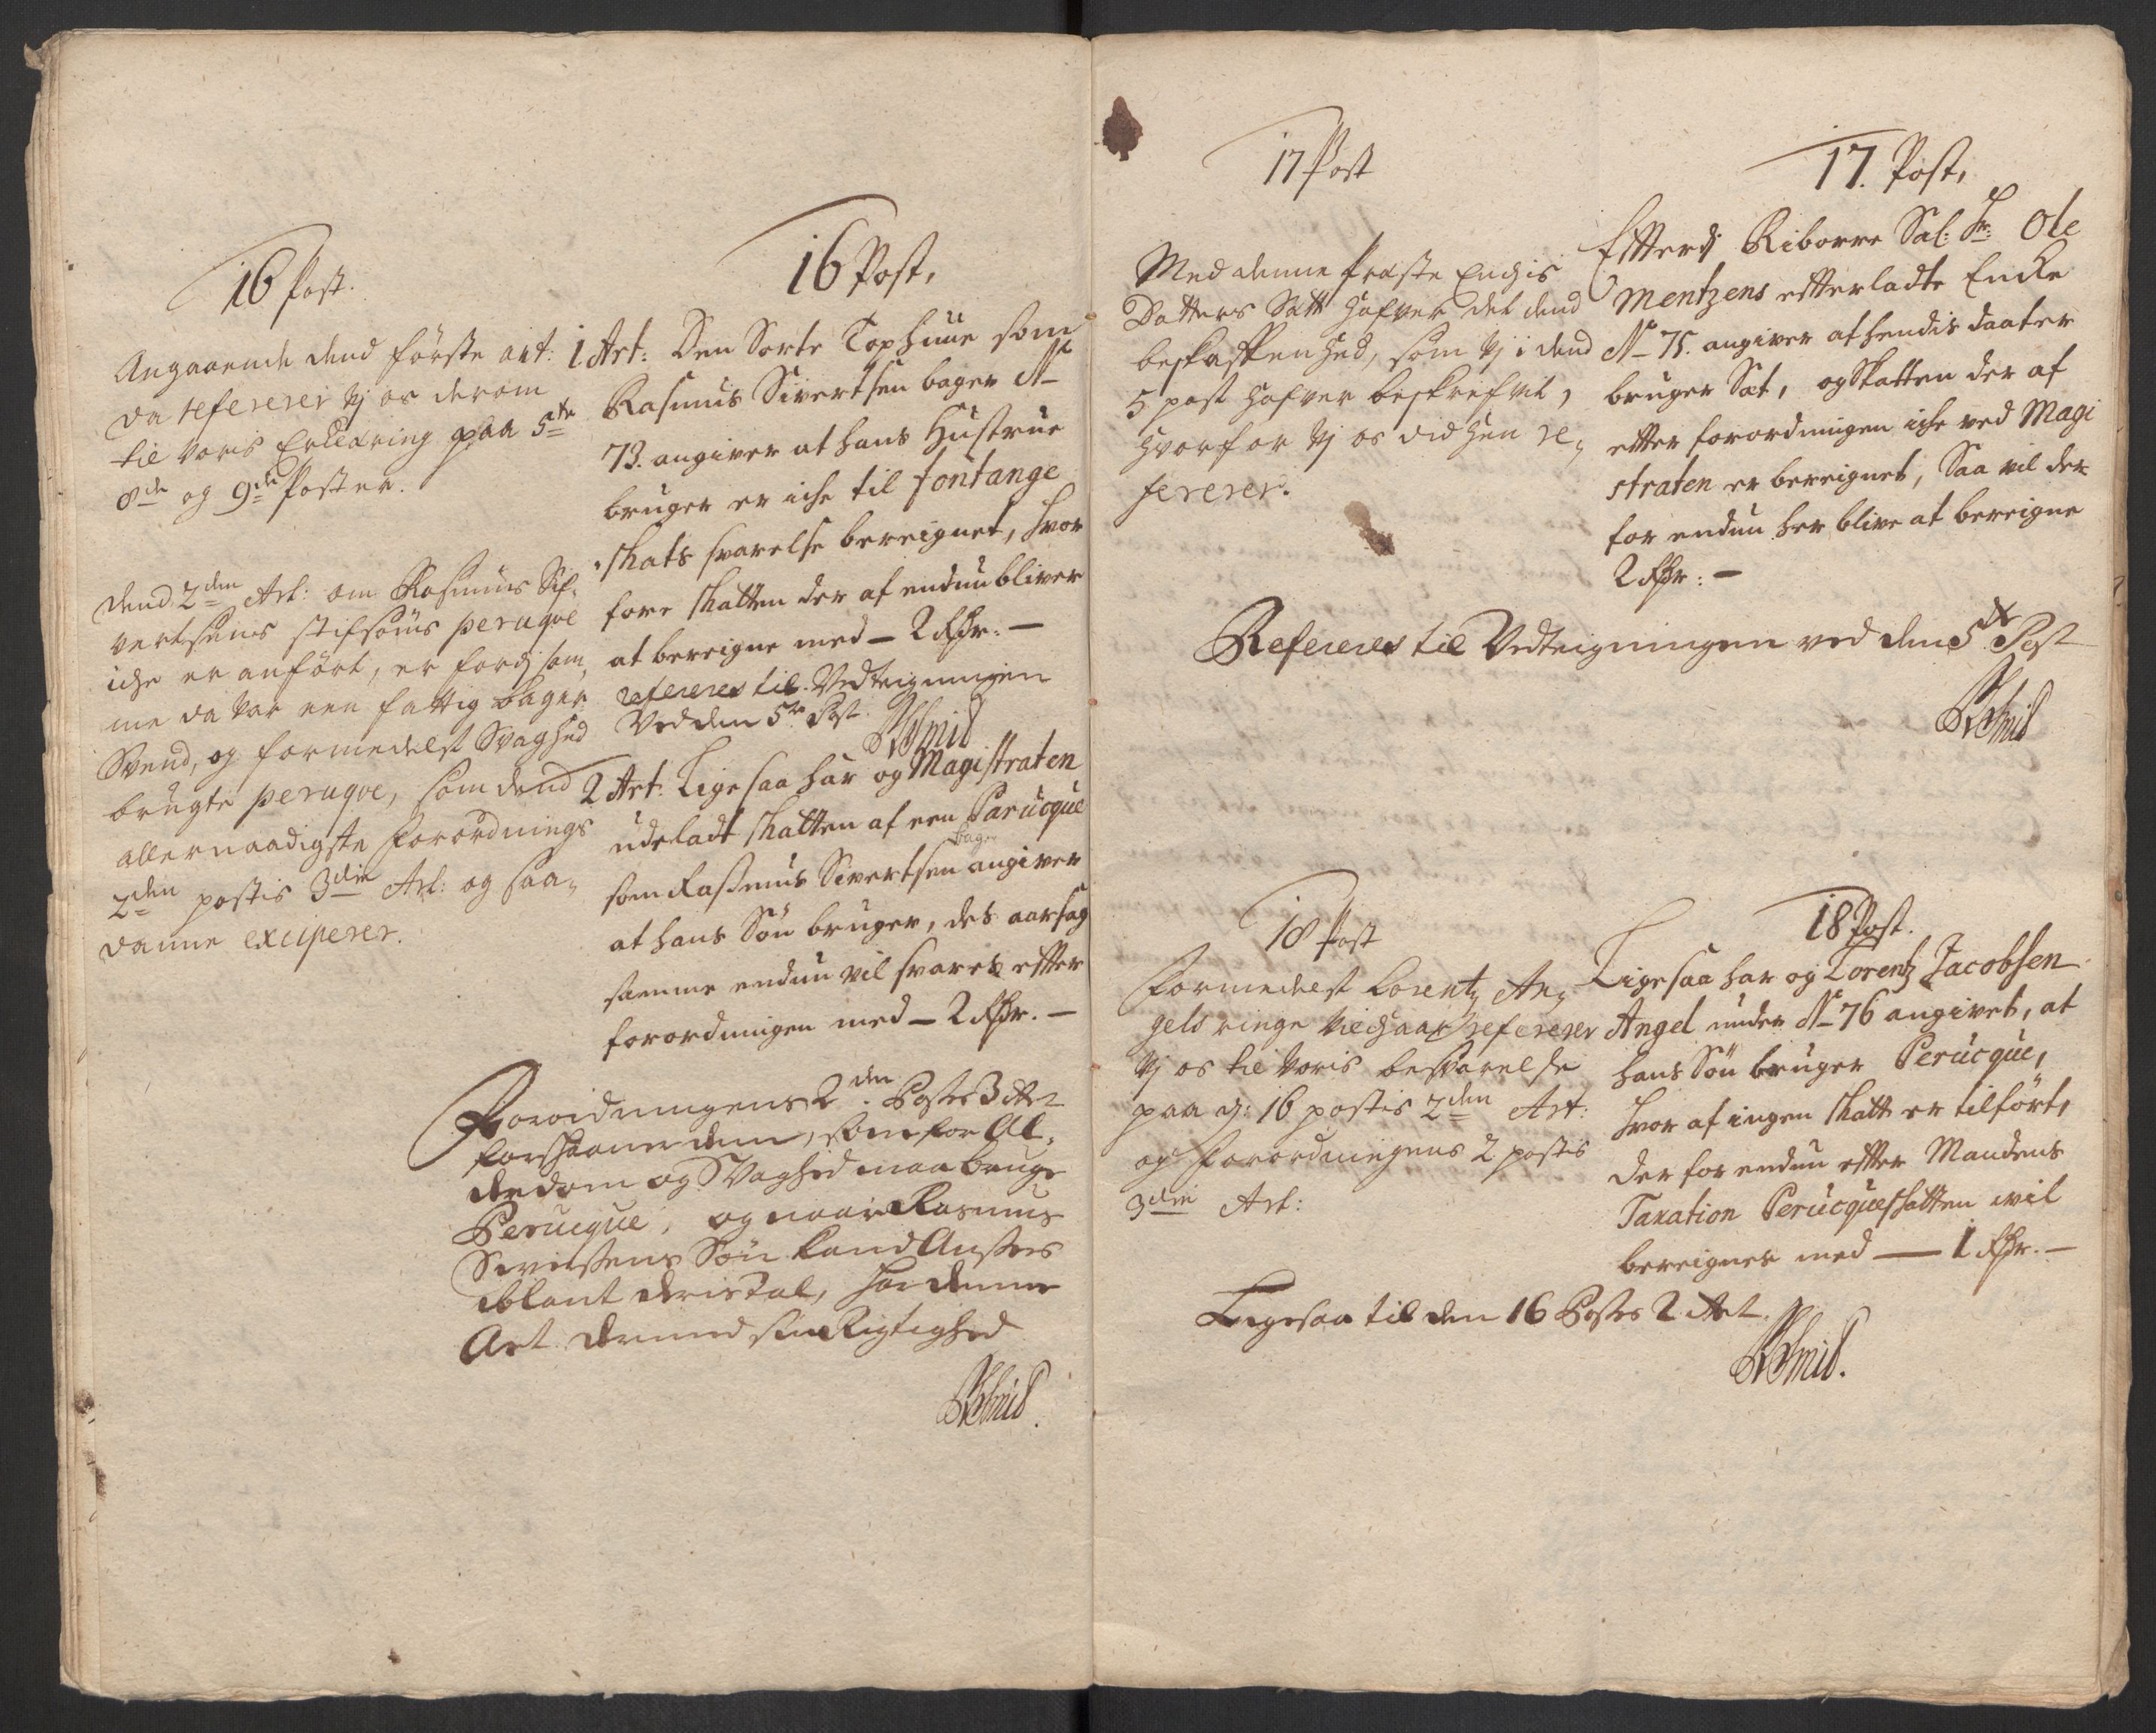 16 Post.
Angaaende dend förste art:
da refererer vj os derom
til voris Erklæring paa 5te
8de og 9de Poster.
dend 2den Art: om Rasmus Sif-
vertsens stifsöns peruqve
iche er anfört, er fordj sam-
me da var een fattig bager
Svend, og formedelst Svaghed
brugte peruqve, som dend
allernaadigste Forordnings
2den postis 3die Art: og saa-
danne exciperer.
16 Post,
1 Art: Den Sorte Tophuue som
Rasmus Sivertsen bager No
73. angiver at hans Hustrue
bruger er iche til fontange
skats svarelse bereignet, hvor
fore skatten der af endnu bliver
at bereigne med - 2 Rdr. -
refereres til Vedteigningen
Ved den 5te Post.
2 Art: Lige saa har og Magistraten
udeladt skatten af een Parucque
som Rasmus Sivertsen bager angiver
at hans Sön bruger, des aarsag
samme endnu vil svares efter
forordningen med - 2 Rdr. -
Forordningens 2den Postes 3 Art
forskaaner dem, som for Al-
derdom og Svaghed maa bruge
Perucque, og naar Rasmus
Sivertsens Sön kand Ansees
iblant deris tal, har denne
Art dermed sin Rigtighed
17 Post
Med denne Præste Enchis
Datters Sætt hafver det dend
beskaffenhed, som vj i dend
5 post hafver beskrefvet,
hvorfor vj os did hen re-
fererer.
17. Post,
Efterdj Riborre Sal: Hr: Ole
Mentzens efterladte Encke
No 75. angiver at hendis daater
bruger Sæt, og Skatten der af
efter forordningen iche ved Magi
straten er bereignet, Saa vil der
for endnu her blive at bereigne
2 Rdr: -
Refereres til Vedteigningen ved den 5te Post
18 Post
Formedelst Lorentz An-
gels ringe vilchaar refererer
vj os til voris besvarelse
paa dj: 16 postis 2den Art:
og Forordningens 2 postis
3die Art:
18 Post.
Ligesaa har og Lorentz Jacobsen
Angel under No 76 angivet, at
hans Sön bruger Perucque,
hvor af ingen skatt er tilfört,
der for endnu efter Mandens
Taxation Perucqueskatten vil
bereignes med - 1 Rdr. -
Ligesaa til den 16 Postes 2 Art.